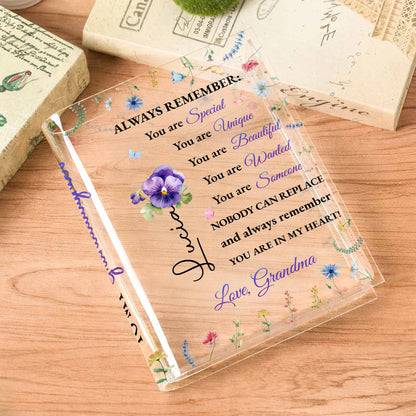 ALWAYS REMEMBER,
You are Special
You are Unique
You are Beautiful
You are Wanted
You are Someone
NOBODY CAN REPLACE
and always remember
YOU ARE IN MY HEART!
Love, Grandma
Lucia